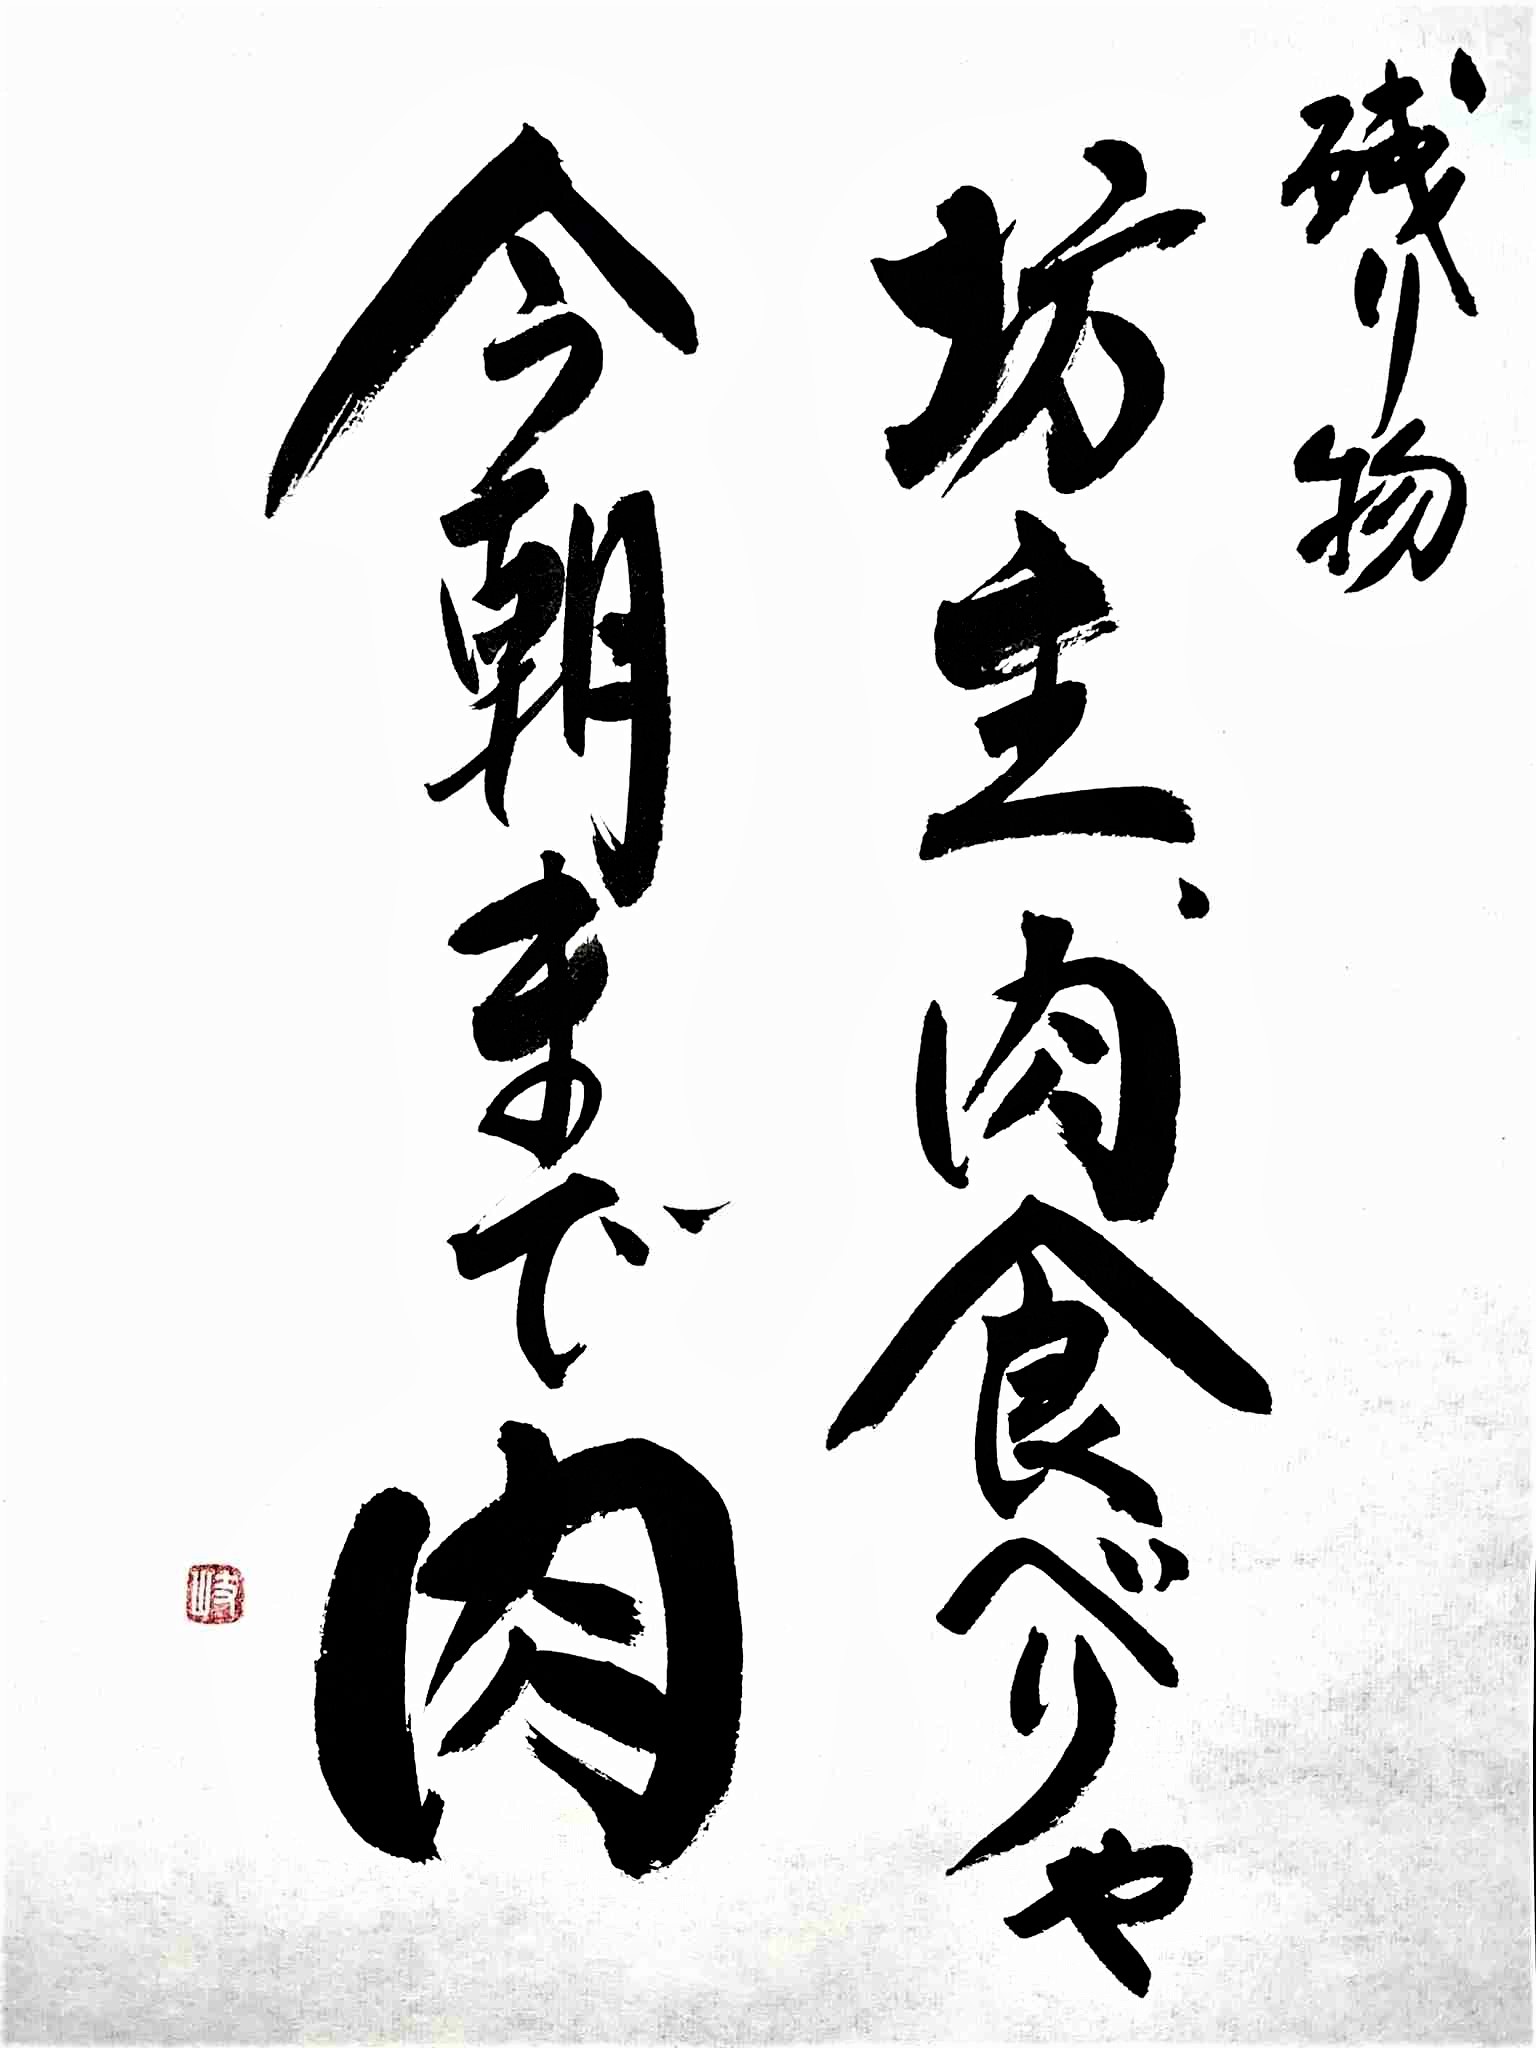 残り物
坊主、肉食べりゃ
今朝まで肉
岐